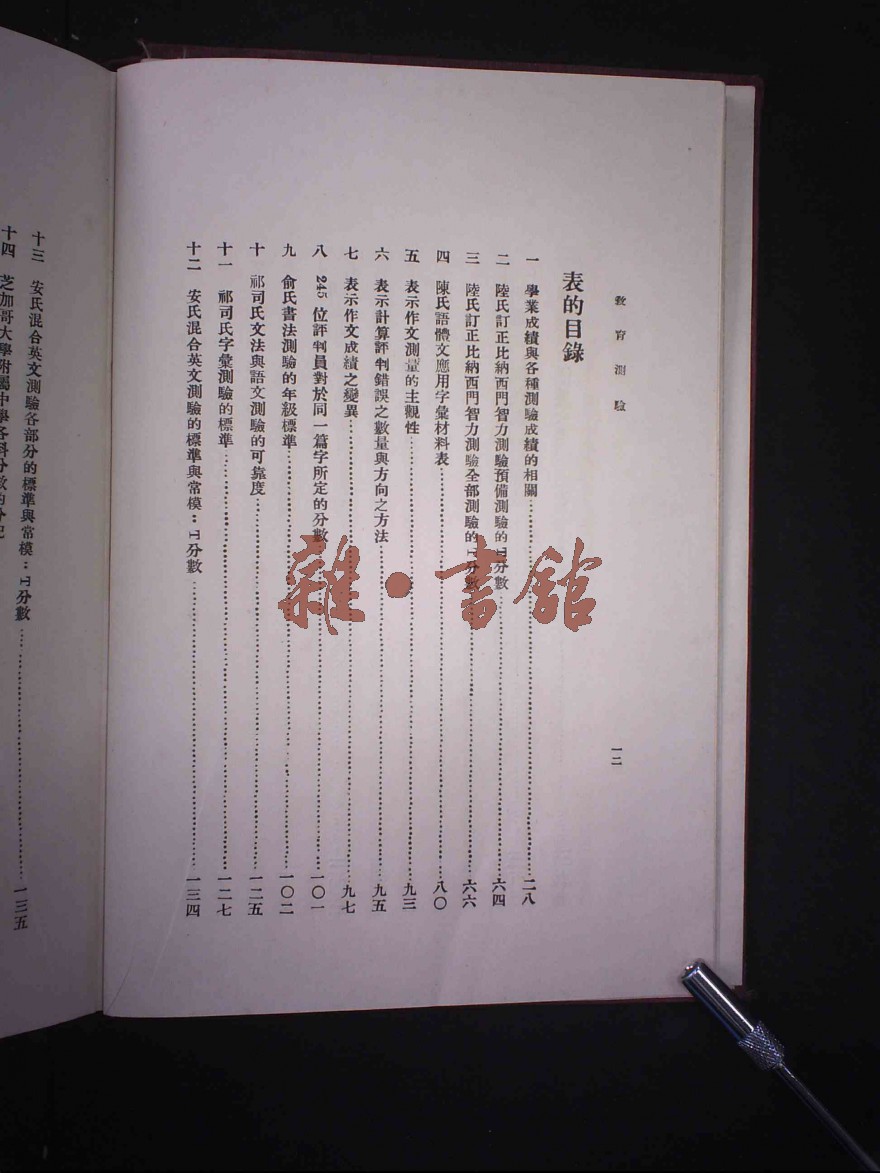 教育測驗
一二
表的目錄
一 學業成績與各種測驗成績的相關……二八
二 陸氏訂正比納西門智力測驗預備測驗的T分數……六四
三 陸氏訂正比納西門智力測驗全部測驗的T分數……六六
四 陳氏語體文應用字彙材料表……八〇
五 表示作文測量的主觀性……九三
六 表示計算評判錯誤之數量與方向之方法……九五
七 表示作文成績之變異……九七
八 245位評判員對於同一篇字所定的分數……一〇一
九 俞氏書法測驗的年級標準……一〇二
十 祁司氏文法與語文測驗的可靠度……一二五
十一 祁司氏字彙測驗的標準……一二七
十二 安氏混合英文測驗的標準與常模：T分數……一三四
十三 安氏混合英文測驗各部分的標準與常模：T分數……一三五
十四 芝加哥大學附屬中學各科分數的分配
雜·書館